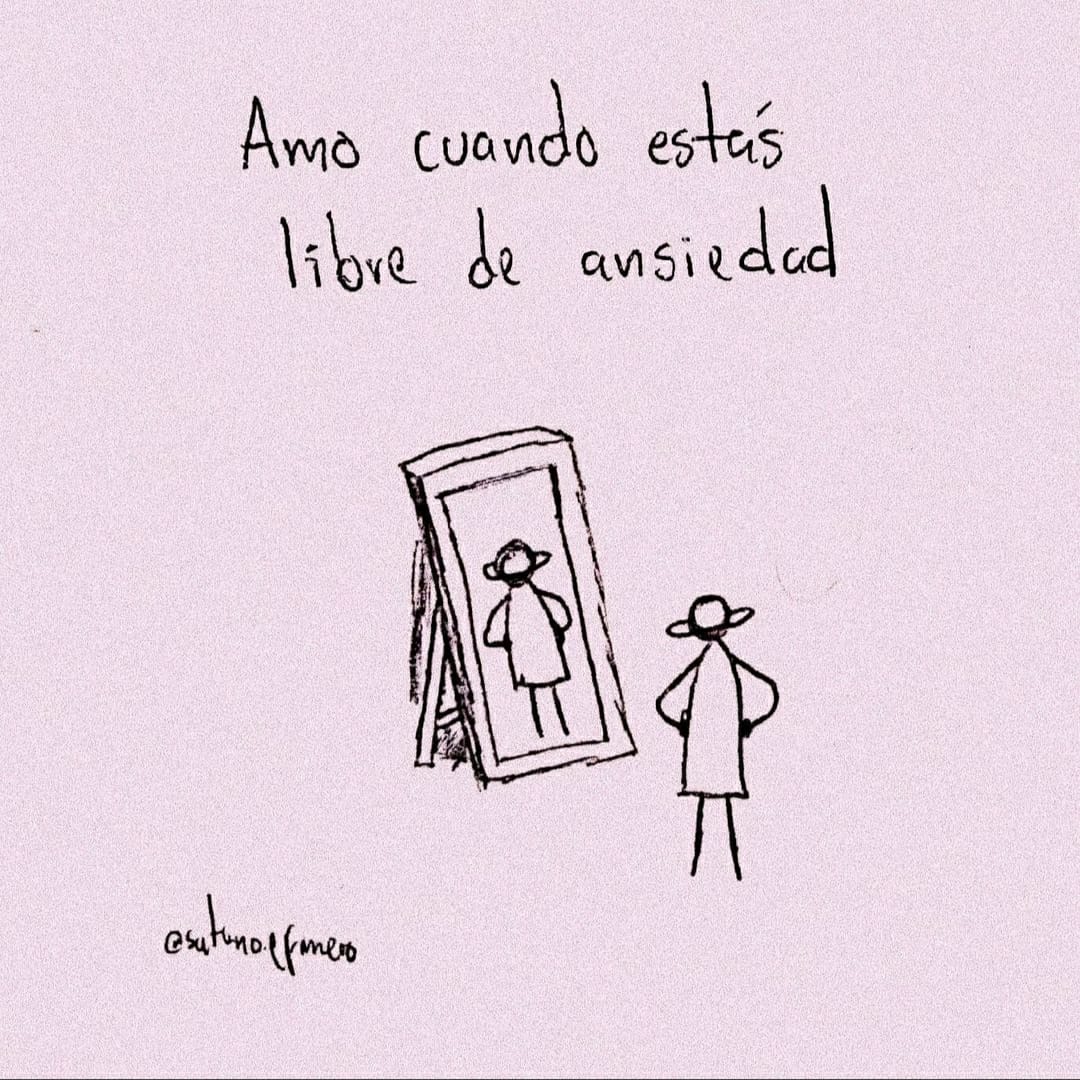 Amo cuando estás
libre de ansiedad
@saturno.efimero